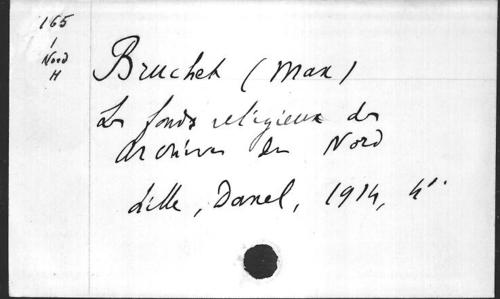 165
1
Nord
H
Bruchet (Max)
Les fonds religieux des
Archives du Nord
Lille, Danel, 1914, 4°.